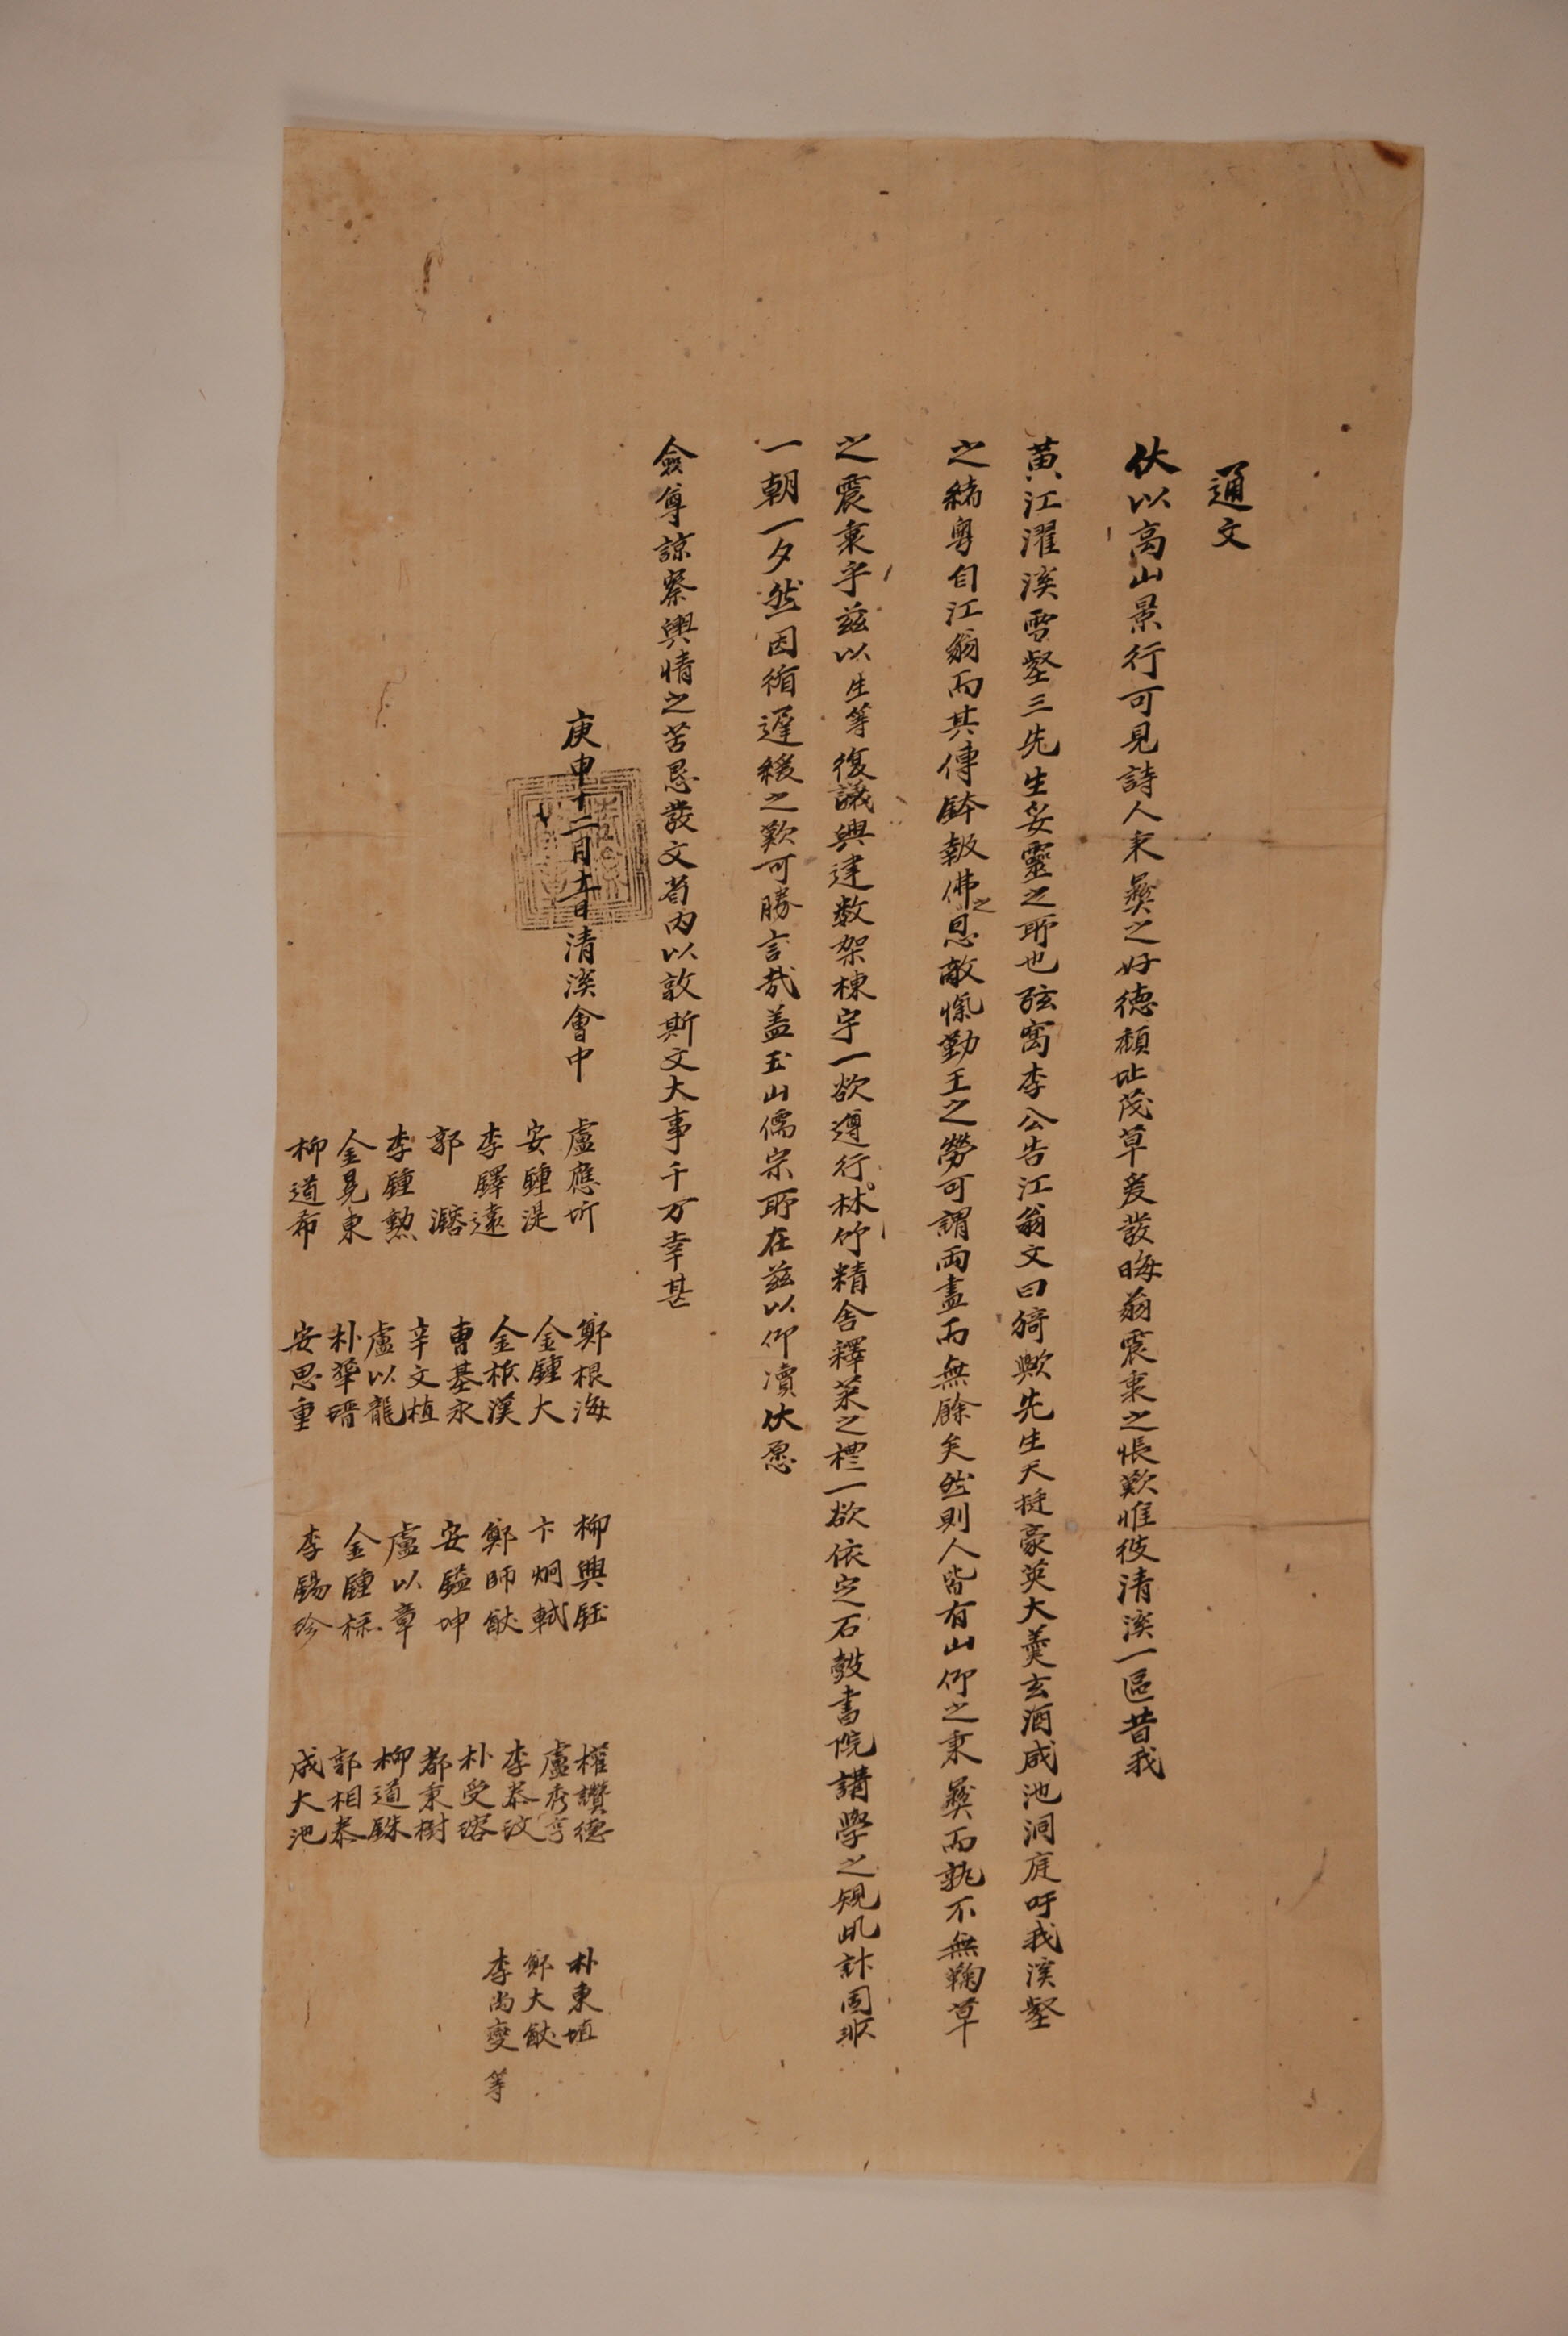 通文
伏以高山景行可見詩人秉彛之好德頹址茂草爰發晦翁震衷之悵歎惟彼清溪一區昔我
黃江濯溪雪壑三先生妥靈之所也弦窩李公告江翁文曰猗歟先生天挺豪英大羹玄酒咸池洞庭吁我溪壑
之緖粤自江翁而其傳鉢報佛之恩敵愾勤王之勞可謂兩盡而無餘矣然則人皆有山仰之秉彛而孰不無鞠草
之震衷乎玆以生等復議興建數架棟宇一欲遵行林竹精舍釋菜之禮一欲依定石皷書院講學之規此計固非
一朝一夕然因循遲緩之歎可勝言哉盖玉山儒宗所在玆以仰瀆伏愿
僉尊諒察輿情之苦懇發文省內以敦斯文大事千万幸甚
庚申十二月十二日清溪會中
盧應圻 鄭根海 柳興鈺 權讚德 朴東埴
安鍾湜 金鍾大 卞炯軾 盧秀亨 鄭大猷
李鐸遠 金根漢 鄭師猷 李泰玟 李尙燮 等
郭 溶 曺基永 安鎰坤 朴受瑢
李鍾勳 辛文植 盧以章 都秉樹
金晃東 盧以龍 金鍾秝 柳道銖
柳道希 朴華瑨 李錫珍 郭相泰
安思重 成大池